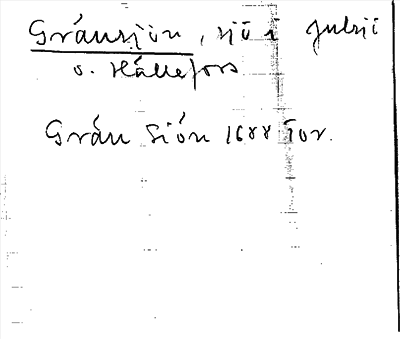 Gränsjön, sjö i Gulsji
o. Hällefors
Grän Siön 1688 Jor.